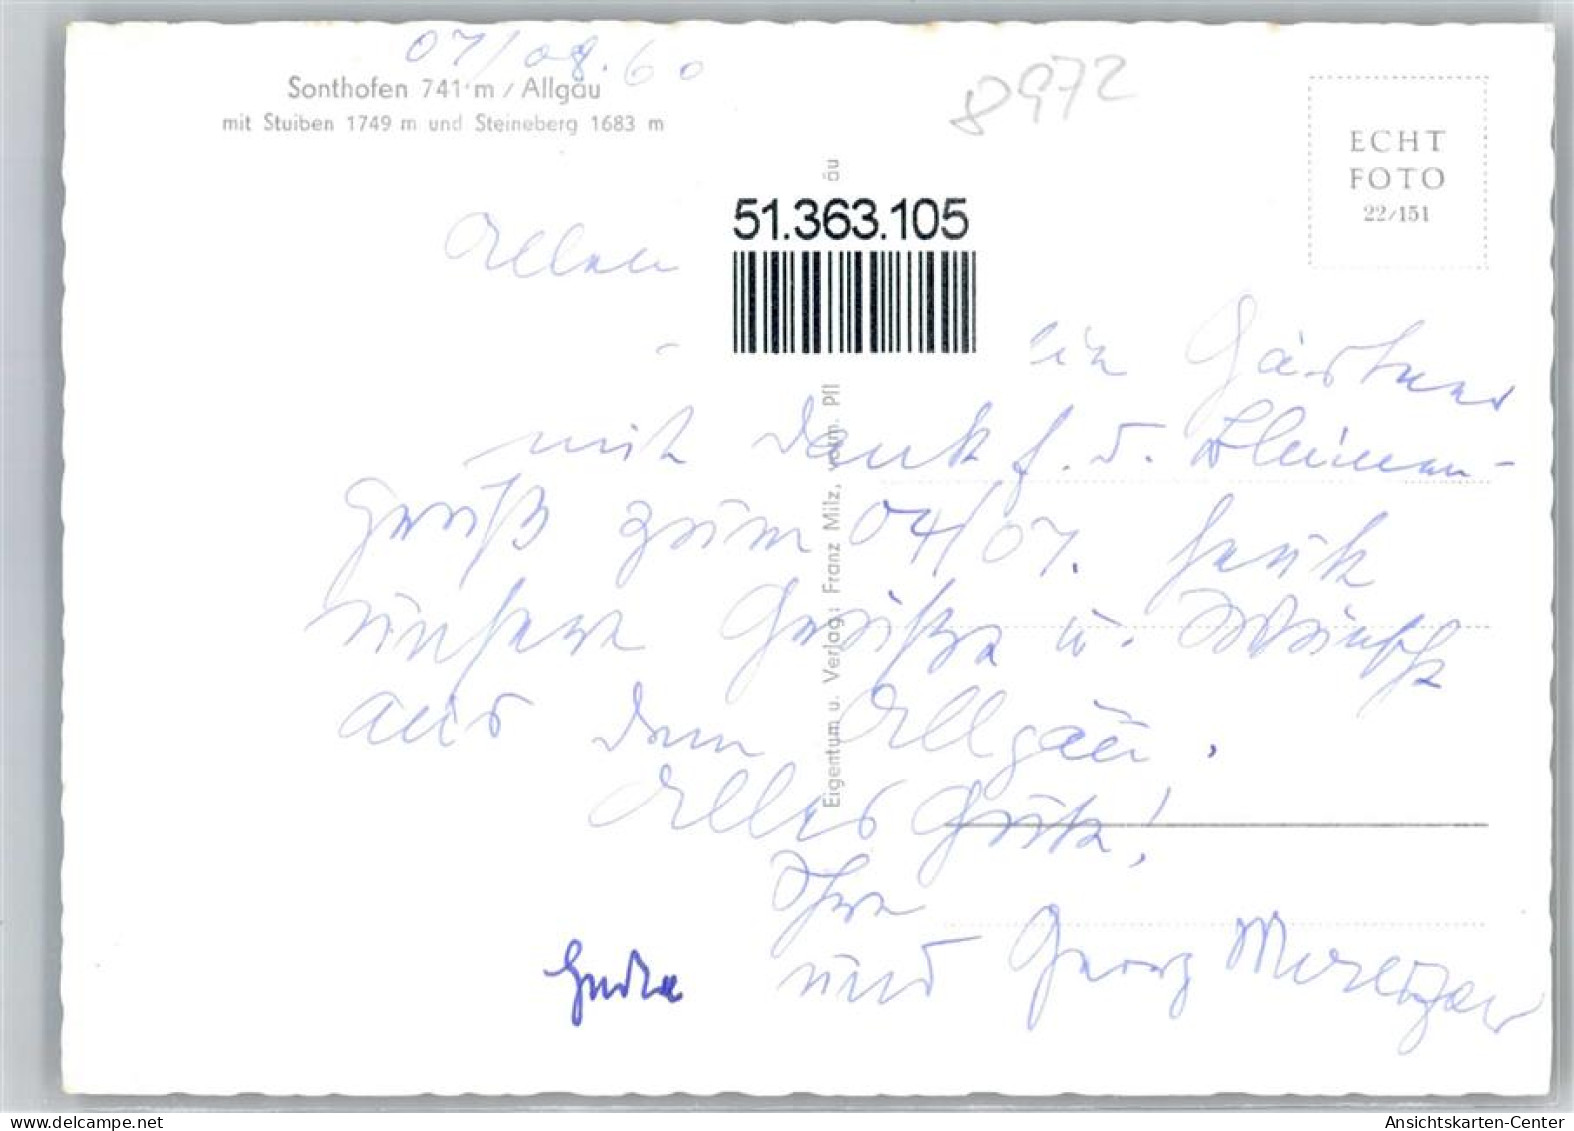 07/08.60
Sonthofen 741 m / Allgäu
mit Stuiben 1749 m und Steineberg 1683 m
8972
ECHT
FOTO
22/151
äu
51.363.105
Eigentum u. Verlag: Franz Milz, vorm. Pfl
Allen
in Gärtner
mit Dank f. d. Blumen-
Gruß zum 04/07.
unsere Grüße u. Wünsche
aus dem Allgäu.
Alles Gute!
Ihre
und Georg
delcampe.net
Ansichtskarten-Center